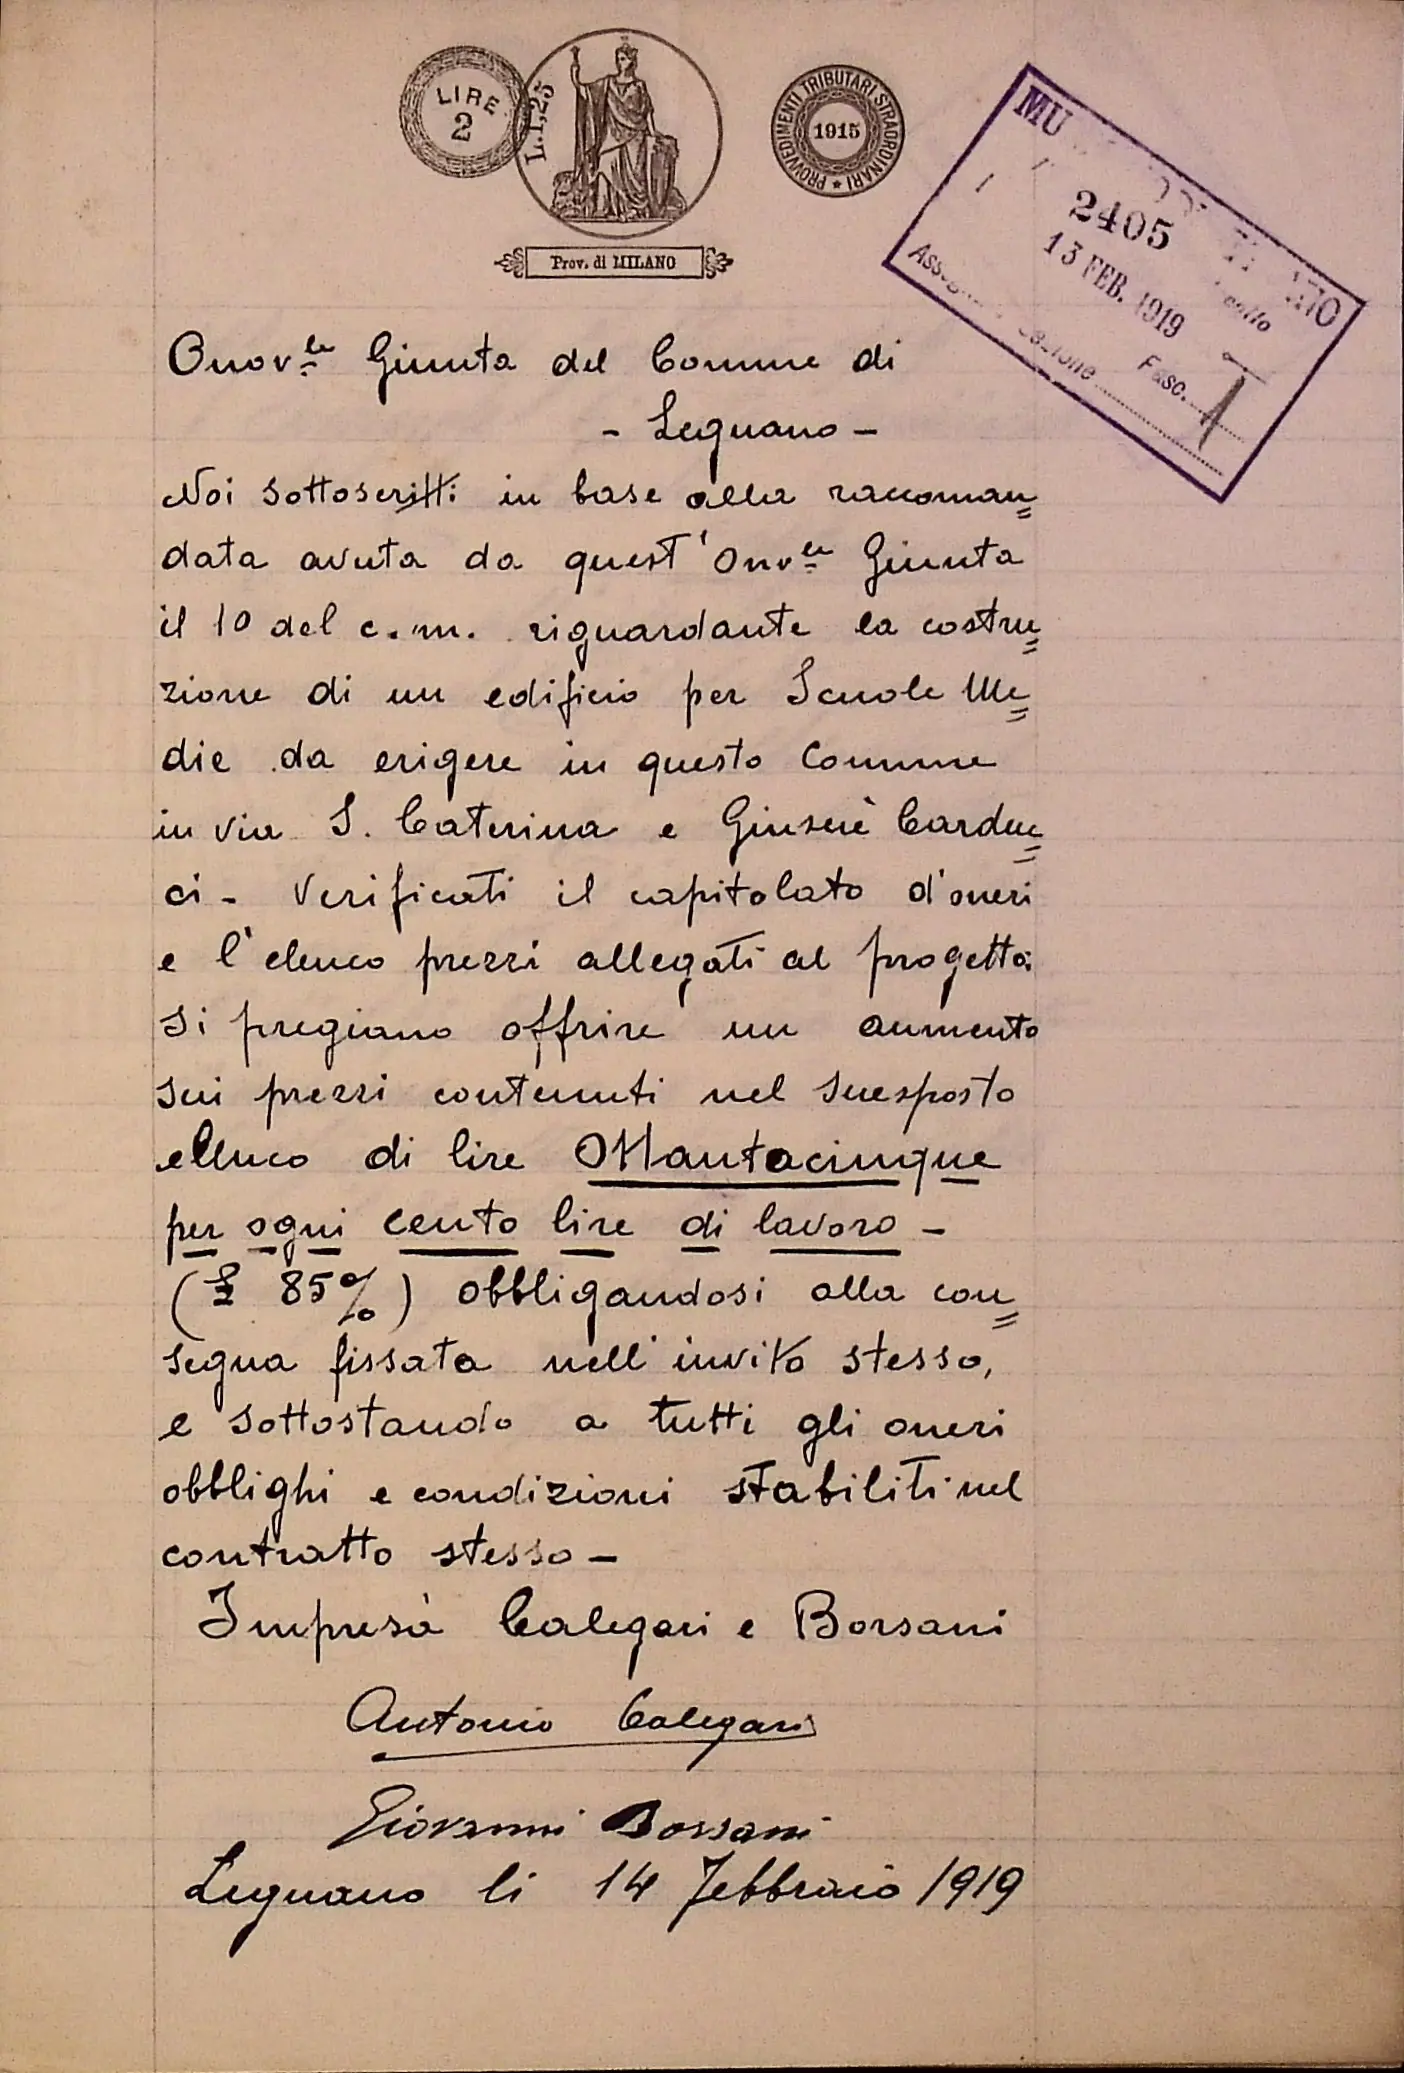 LIRE
2
L.1,25
PROVVEDIMENTI TRIBUTARI STRAORDINARI
1915
Prov. di MILANO
2405
13 FEB. 1919
Fasc. 1
Onorle Giunta del Comune di
- Legnano -
Noi sottoscritti in base alla raccoman=
data avuta da quest'Onvle Giunta
il 10 del c.m. riguardante la costru=
zione di un edificio per Scuole Me=
die da erigere in questo Comune
in via S. Caterina e Giusuè Carduc=
ci - Verificati il capitolato d'oneri
e l'elenco prezzi allegati al progetto:
Si pregiano offrire un aumento
sui prezzi contenuti nel suesposto
ellenco di lire Ottantacinque
per ogni cento lire di lavoro -
(£ 85%) obbligandosi alla con=
segna fissata nell'invito stesso,
e sottostando a tutti gli oneri
obblighi e condizioni stabiliti nel
contratto stesso -
Impresa Calegari e Borsani
Antonio Calegari
Giovanni Borsani
Legnano li 14 Febbraio 1919